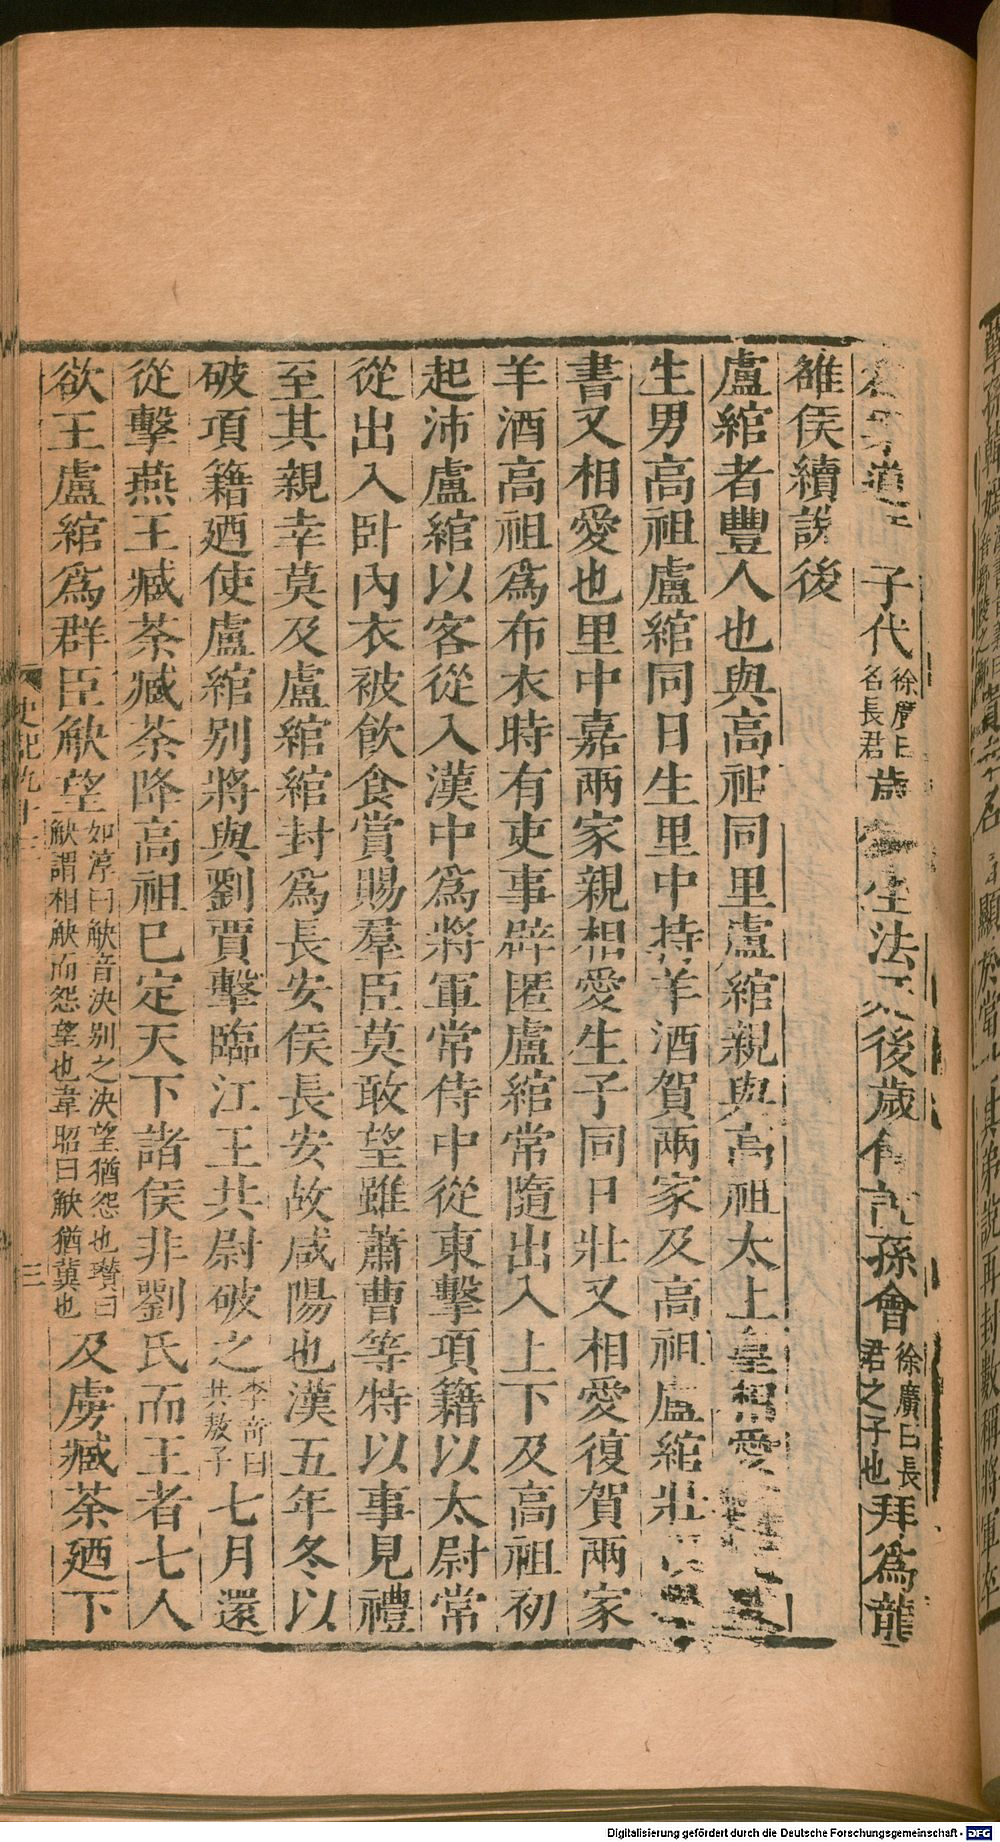 道 子代徐廣曰名長君歲 坐法 後歲 孫會徐廣曰長君之子也拜為龍
雒侯續說後
盧綰者豐人也與高祖同里盧綰親與高祖太上皇相愛
生男高祖盧綰同日生里中持羊酒賀兩家及高祖盧綰壯
書又相愛也里中嘉兩家親相愛生子同日壯又相愛復賀兩家
羊酒高祖爲布衣時有吏事辟匿盧綰常隨出入上下及高祖初
起沛盧綰以客從入漢中爲將軍常侍中從東擊項籍以太尉常
從出入卧內衣被飲食賞賜羣臣莫敢望雖蕭曹等特以事見禮
至其親幸莫及盧綰綰封爲長安侯長安故咸陽也漢五年冬以
破項籍廼使盧綰別將與劉賈擊臨江王共尉破之李奇曰共敖子七月還
從擊燕王臧荼臧荼降高祖已定天下諸侯非劉氏而王者七人
欲王盧綰爲群臣觖望如淳曰觖音決別之決望猶怨也瓚曰觖謂相觖而怨望也韋昭曰觖猶冀也及虜臧荼廼下
史記九十三
三
Digitalisierung gefördert durch die Deutsche Forschungsgemeinschaft - DFG